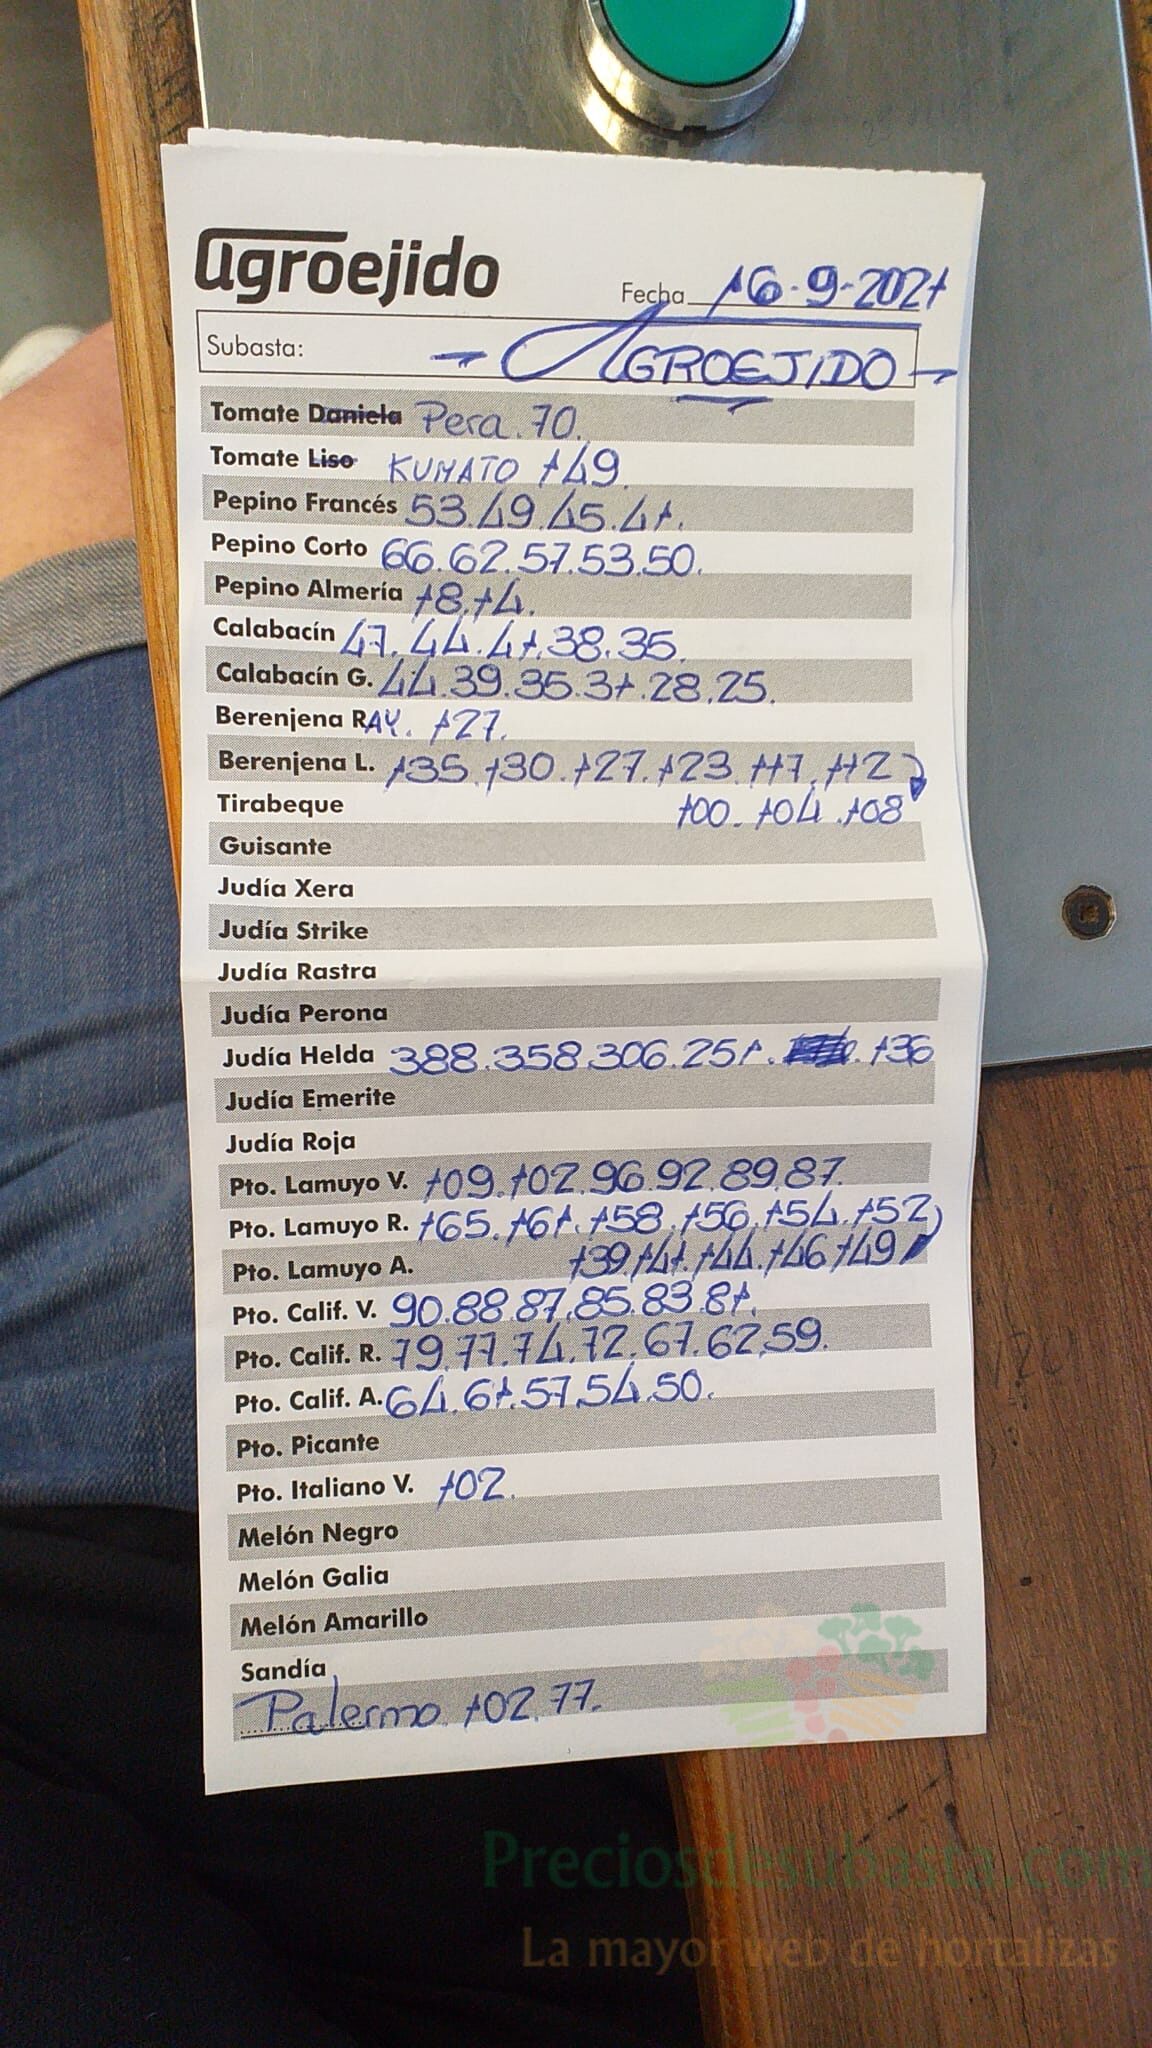 agroejido
Fecha 16-9-2021
Subaste: - AGROEJIDO -
Tomate Daniela Pera. 70.
Tomate Liso KUMATO 149.
Pepino Francés 53.49.45.41.
Pepino Corto 66.62.57.53.50.
Pepino Almería 18.14.
Calabacín 47.44.41.38.35.
Calabacín G. 44.39.35.31.28.25.
Berenjena RAY. 127.
Berenjena L. 135.130.127.123.117.112
Tirabeque 100.104.108
Guisante
Judía Xera
Judía Strike
Judía Rastra
Judía Perona
Judía Helda 388.358.306.251. 136
Judía Emerite
Judía Roja
Pto. Lamuyo V. 109.102.96.92.89.87.
Pto. Lamuyo R. 165.161.158.156.154.152
Pto. Lamuyo A. 139.141.144.146.149
Pto. Calif. V. 90.88.87.85.83.81.
Pto. Calif. R. 79.77.74.72.67.62.59.
Pto. Calif. A. 64.61.57.54.50.
Pto. Picante
Pto. Italiano V. 102.
Melón Negro
Melón Galia
Melón Amarillo
Sandía
Palermo 102.77.
Preciosdesubasta.com
La mayor web de hortalizas